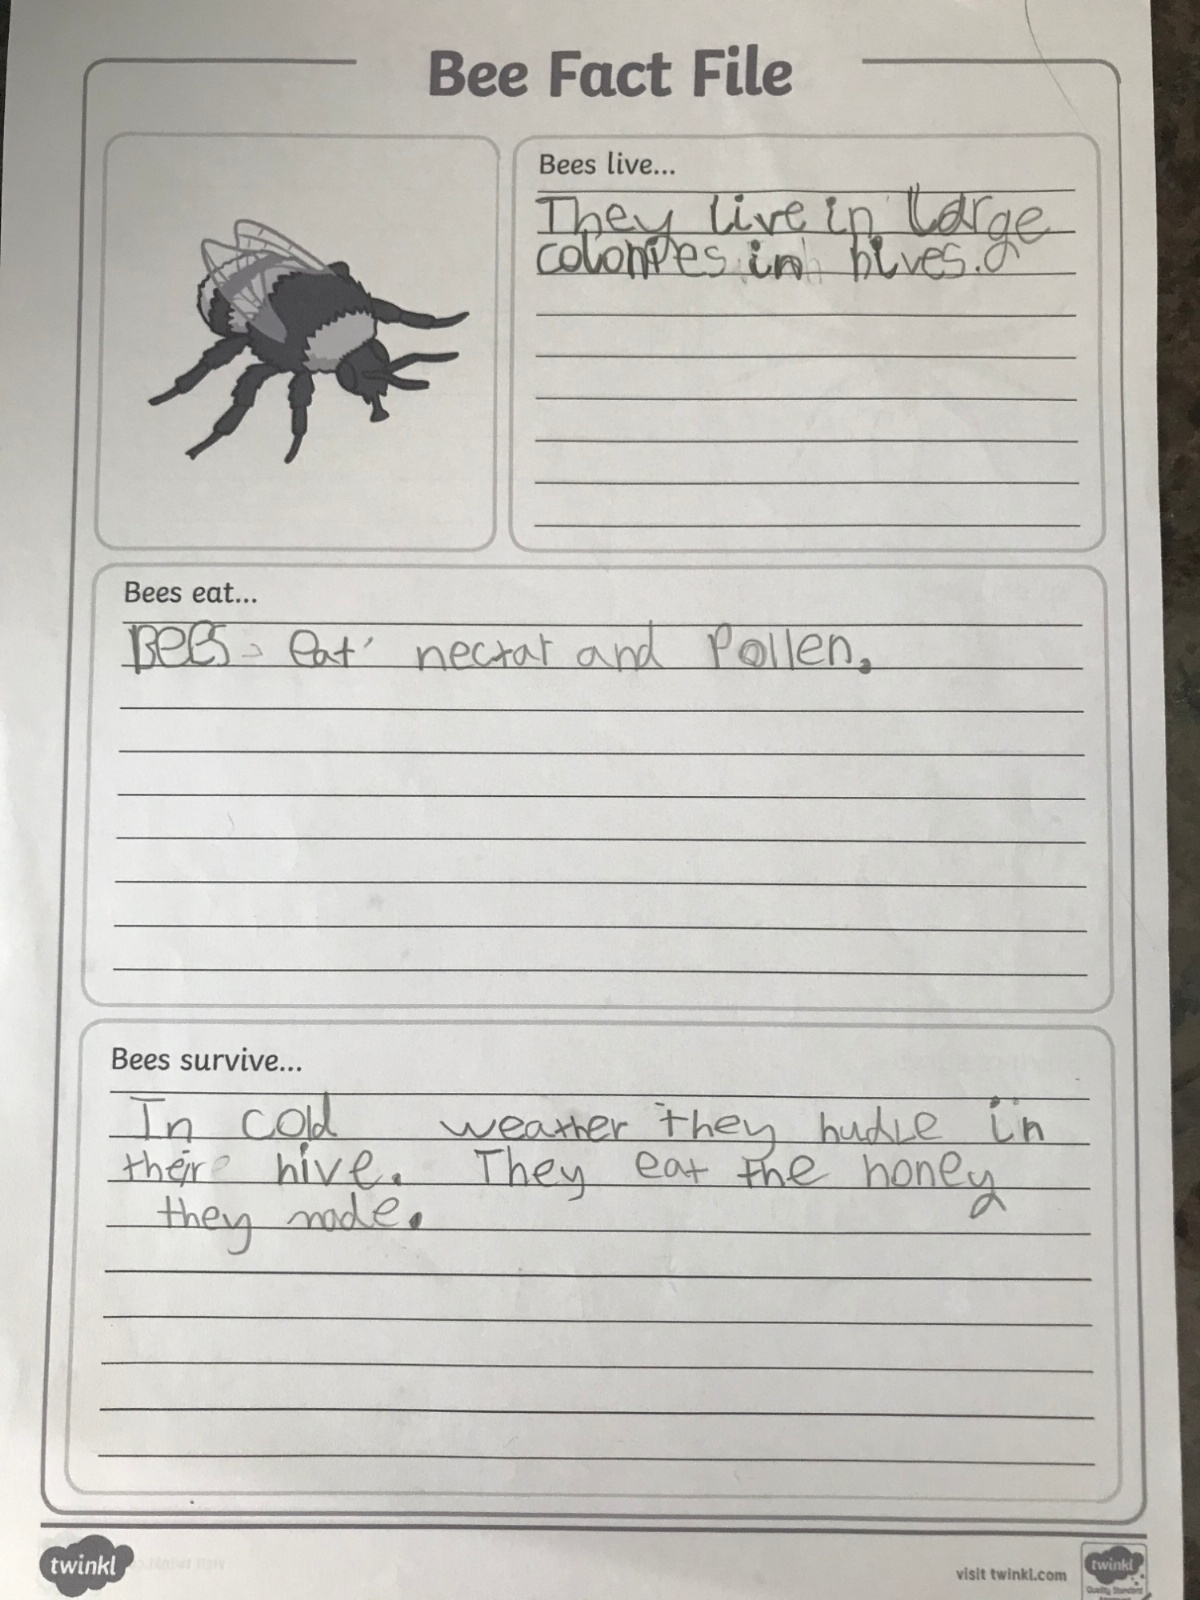 Bee Fact File
Bees live...
They live in large
colonies in hives.
Bees eat...
Bees eat nectar and Pollen.
Bees survive...
In cold weather they hudle in
their hive. They eat the honey
they made.
twinkl
visit twinkl.com
twinkl
Quality Standard